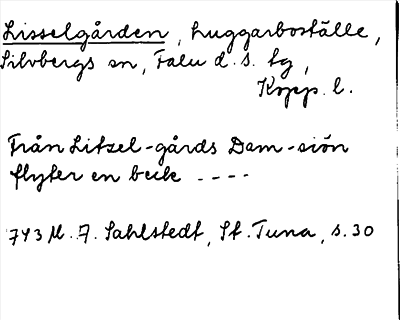 Lisselgården, huggarboställe,
Silvbergs sn, Falu d.s. tg,
Kopp. l.
Från Litzel-gårds Dam-siön
flyter en beck ----
1743 M. A. Sahlstedt, St. Tuna, s. 30